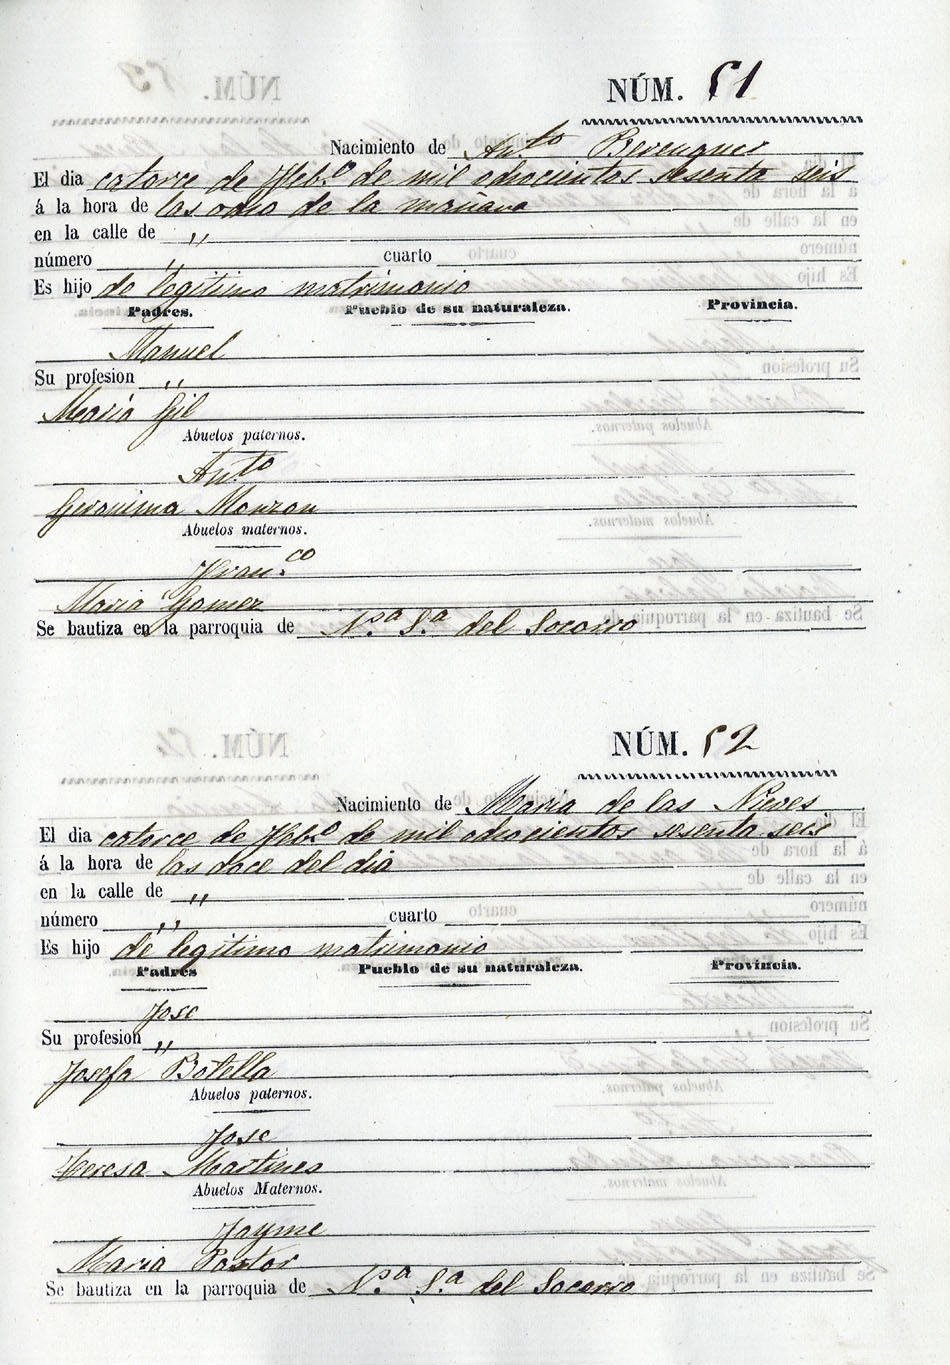 NÚM. 51
Nacimiento de Ant.to Berenguer
El dia catorce de Feb.o de mil ochocientos sesenta seis
á la hora de las ocho de la mañana
en la calle de "
número " cuarto
Es hijo de legitimo matrimonio
Padres. Pueblo de su naturaleza. Provincia.
Manuel
Su profesion "
Maria Gil
Abuelos paternos.
Ant.to
Geronima Monzon
Abuelos maternos.
Fran.co
Maria Gomez
Se bautiza en la parroquia de N.a S.a del Socorro
NÚM. 52
Nacimiento de Maria de las Nieves
El dia catorce de Feb.o de mil ochocientos sesenta seis
á la hora de las doce del dia
en la calle de "
número " cuarto
Es hijo de legitimo matrimonio
Padres Pueblo de su naturaleza. Provincia.
Jose
Su profesion "
Josefa Botella
Abuelos paternos.
Jose
Teresa Martines
Abuelos Maternos.
Jayme
Maria Pastor
Se bautiza en la parroquia de N.a S.a del Socorro